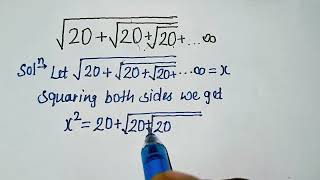 √20+√20+√20+...∞
Solⁿ Let √20+√20+√20+...∞ = x
Squaring both sides we get
x² = 20+√20+√20